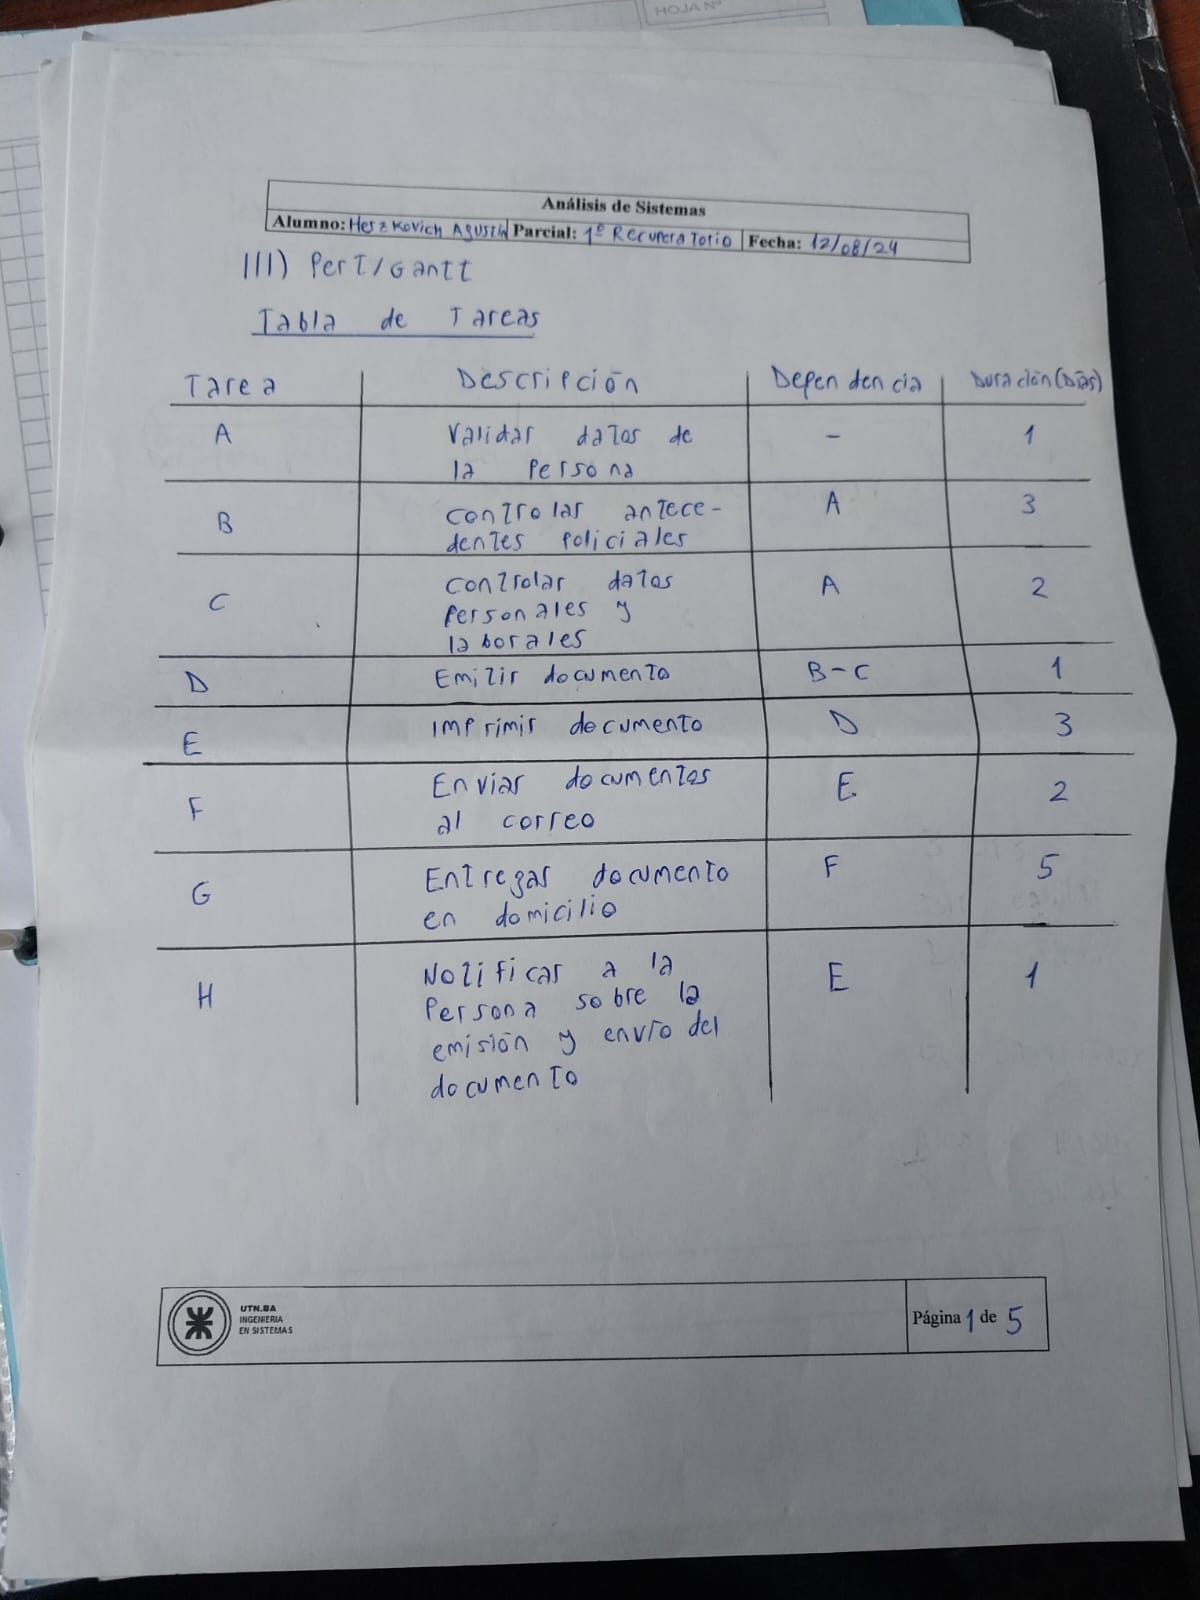 HOJA Nº
Análisis de Sistemas
Alumno: Herzkovich Agustín Parcial: 1º Recuperatorio Fecha: 12/08/24
III) Pert/Gantt
Tabla de Tareas
Tarea Descripción Dependencia Duración (Días)
A Validar datos de - 1
la persona
B controlar antece- A 3
dentes policiales
C controlar datos A 2
personales y
laborales
D Emitir documento B-C 1
E Imprimir documento D 3
F Enviar documentos E 2
al correo
G Entregar documento F 5
en domicilio
H Notificar a la E 1
persona sobre la
emisión y envío del
documento
UTN.BA
INGENIERIA
EN SISTEMAS
Página 1 de 5